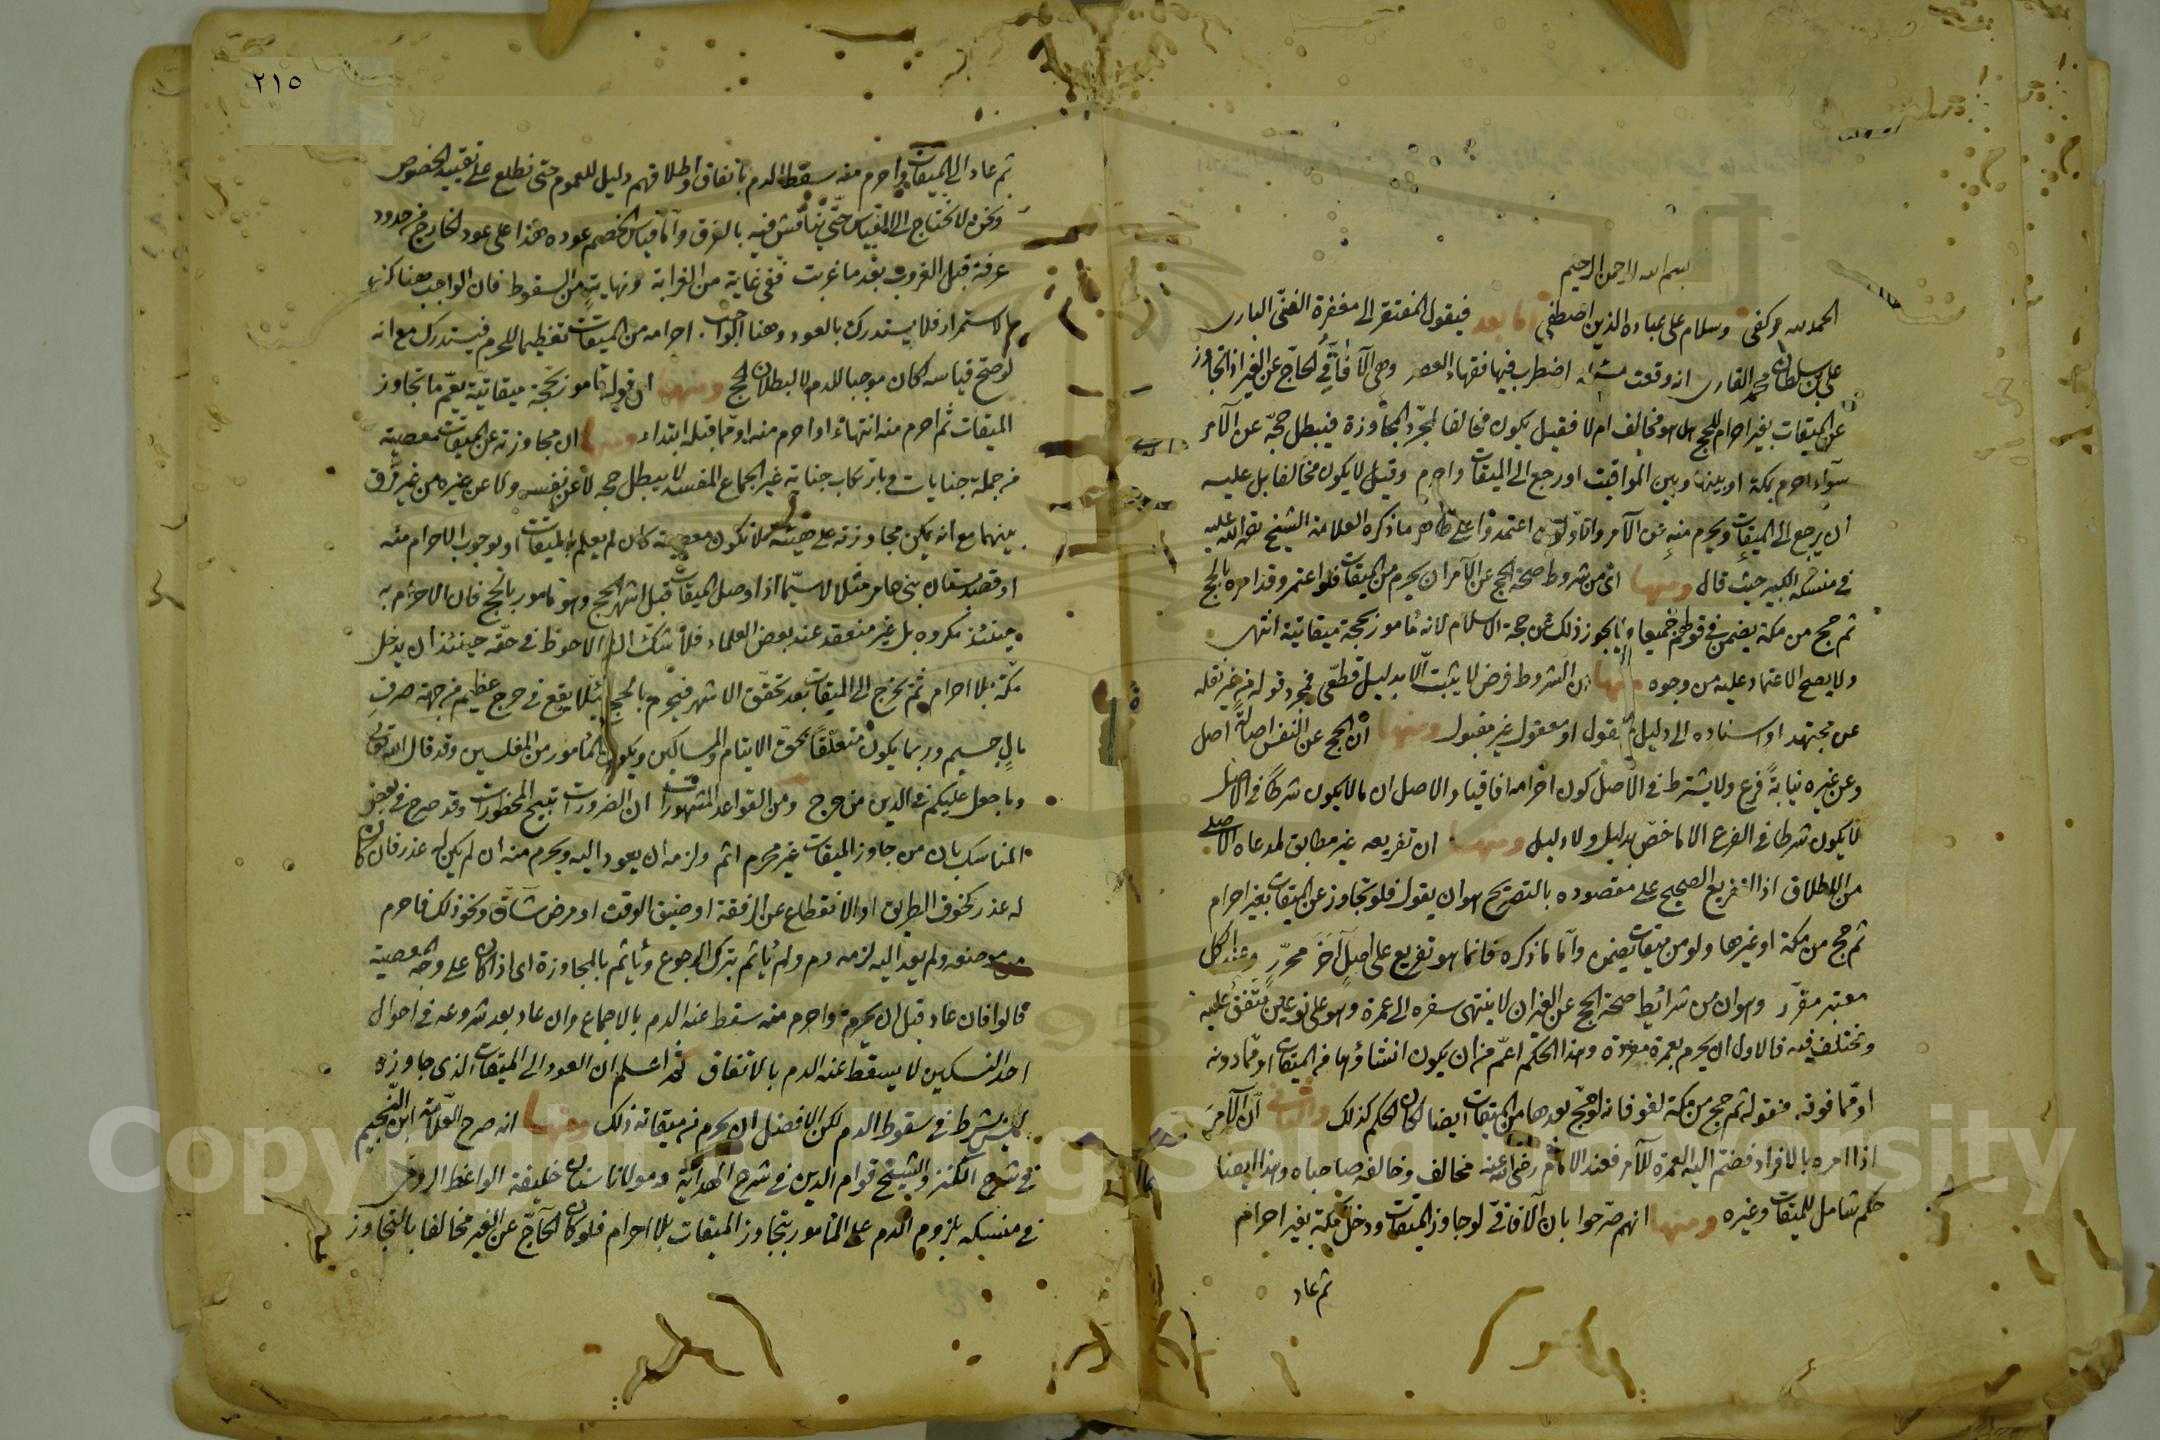 بسم الله الرحمن الرحيم
الحمد لله وكفى وسلام على عباده الذين اصطفى اما بعد فيقول المفتقر الى مغفرة الغني الباري
على بن سلطان محمد القاري انه وقعت مسئلة اضطرب فيها فقهاء العصر وهي ان الآفاقي الحاج عن الغير اذا تجاوز
عن الميقات بغير احرام للحج هل هو مخالف ام لا فقيل يكون مخالفا لمجرد المجاوزة فيبطل حجه عن الآمر
سواء احرم بمكة او بينها وبين المواقيت او رجع الى الميقات واحرم وقيل لا يكون مخالفا بل عليه
ان يرجع الى الميقات ويحرم منه عن الآمر واما الاولون اعتمدوا على ظاهر ما ذكره العلامة الشيخ رحمة الله عليه
في منسكه الكبير حيث قال ومنها اي من شروط صحة الحج عن الآمر ان يحرم من الميقات فلو اعتمر وقد امره بالحج
ثم حج من مكة يضمن في قولهم جميعا ولا يجوز ذلك عن حجة الاسلام لانه مأمور بحجة ميقاتية انتهى
ولا يصح الاعتماد عليه من وجوه منها ان الشروط فرض لا يثبت الا بدليل قطعي فمجرد قوله من غير نقله
عن مجتهد او اسناده الى دليل منقول او معقول غير مقبول ومنها ان الحج عن النفس اصالة اصل
وعن غيره نيابة فرع ولا يشترط في الاصل كون احرامه افاقيا والاصل ان ما لا يكون شرطا في الاصل
لا يكون شرطا في الفرع الا ما خص بدليل ولا دليل ومنها ان تفريعه غير مطابق لمدعاه الاصلي
من الاطلاق اذ التفريع الصحيح على مقصوده بالتصريح هو ان يقول فلو تجاوز عن الميقات بغير احرام
ثم حج من مكة او غيرها ولو من ميقات يضمن واما ما ذكره فانما هو تفريع على اصل آخر محرر وعند الكل
معتبر مقرر وهو ان من شرائط صحة الحج عن الغير ان لا ينتهى سفره الى عمرة وهو على نوعين متفق عليه
ومختلف فيه فالاول ان يحرم بعمرة مفردة وهذا الحكم اعم من ان يكون انشاؤها من الميقات او مما دونه
او مما فوقه فقوله ثم حج من مكة لغو فانه لو حج بعدها من الميقات ايضا كان الحكم كذلك والثاني ان الآمر
اذا امره بالافراد فضم اليه العمرة للآمر فعند الامام رضي الله عنه مخالف وخالفه صاحباه وهذا ايضا
حكم شامل للميقات وغيره ومنها انهم صرحوا بان الآفاقي لو جاوز الميقات ودخل مكة بغير احرام
ثم عاد
٢١٥
ثم عاد الى الميقات واحرم منه سقط الدم باتفاق واطلاقهم دليل للعموم حتى نطلع على تقييد الخصوص
ونحن لا نحتاج الى القياس حتى يناقش فيه بالفرق واما قياس الخصم عوده هذا على عود الخارج من حدود
عرفة قبل الغروب بعد ما غربت ففي غاية من الغرابة ونهاية من السقوط فان الواجب هناك
الاستمرار فلا يستدرك بالعود وهنا الواجب احرامه من الميقات تعظيما للحرم فيستدرك مع انه
لو صح قياسه لكان موجبا للدم لا لبطلان الحج ومنها ان قوله مأمور بحجة ميقاتية يعم ما تجاوز
الميقات ثم احرم منه انتهاء او احرم منه او مما قبله ابتداء ومنها ان مجاوزته عن الميقات معصية
من جملة جنايات وبارتكاب جناية غير الجماع المفسد لا يبطل حجه لا عن نفسه ولا عن غيره من غير فرق
بينهما مع انه يمكن مجاوزته على هيئة لا تكون معصية كان لم يعلم بالميقات او بوجوب الاحرام منه
او قصد بستان بني عامر مثلا لا سيما اذا وصل الميقات قبل اشهر الحج وهو مأمور بالحج فان الاحرام به
حينئذ مكروه بل غير منعقد عند بعض العلماء فلا شك ان الاحوط في حقه حينئذ ان يدخل
مكة بلا احرام ثم يخرج الى الميقات بعد تحقق الاشهر فيحرم بالحج لئلا يقع في حرج عظيم من جهة صرف
مال جسيم وربما يكون متعلقا بحق الايتام والمساكين ويكون المأمور من المفلسين وقد قال الله تعالى
وما جعل عليكم في الدين من حرج ومن القواعد المشهورات ان الضرورات تبيح المحظورات وقد صرح في بعض
المناسك بان من جاوز الميقات غير محرم اثم ولزمه ان يعود اليه ويحرم منه ان لم يكن له عذر فان كان
له عذر كخوف الطريق او الانقطاع عن الرفقة او ضيق الوقت او مرض شاق ونحو ذلك فاحرم
من موضعه ولم يعد اليه لزمه دم ولم يأثم بترك الرجوع ويأثم بالمجاوزة اي اذا كان على وجه المعصية
قالوا فان عاد قبل ان يحرم واحرم منه سقط عنه الدم بالاجماع وان عاد بعد شروعه في احوال
احد النسكين لا يسقط عنه الدم بالاتفاق ثم اعلم ان العود الى الميقات الذي جاوزه
ليس بشرط في سقوط الدم لكن الافضل ان يحرم من ميقاته ذلك ومنها انه صرح العلامة ابن النجيم
في شرح الكنز والشيخ قوام الدين في شرح الهداية ومولانا سنان خليفة الواعظ الرومي
في منسكه بلزوم الدم على المأمور بتجاوز الميقات بلا احرام فلو كان الحاج عن الغير مخالفا بالتجاوز